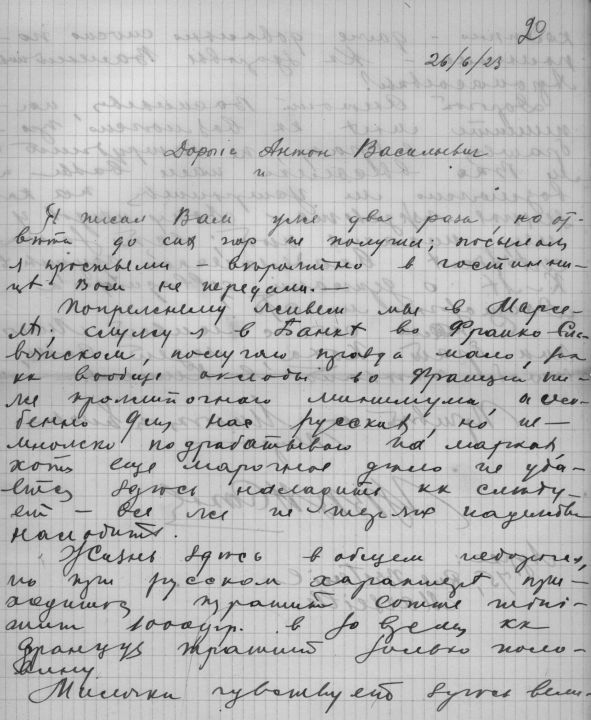 20
26/6/23
Дорогой Антон Васильевич
и
Я писал Вам уже два раза, но от-
вѣта до сих пор не получил; посылал
я простыми – вѣроятно в гостинни-
цѣ Вам не передали. –
По прежнему живем мы в Марсе-
лѣ; служу я в Банкѣ во Франко-Сла-
вянском, получаю правда мало,
кк вообще оклады во Франции ни-
же прожиточного минимума, а осо-
бенно для нас русских, но не-
множко подрабатываю на марках,
хотя еще марочное дѣло не уда-
ется здѣсь наладить кк слѣду-
ет – все же не теряю надежды
наладить.
Жизнь здѣсь в общем недорогая,
но при русском характерѣ при-
ходится тратить
1000 фр. в кк
француз тратит только поло-
вину
Милочка чувствует здѣсь вели-